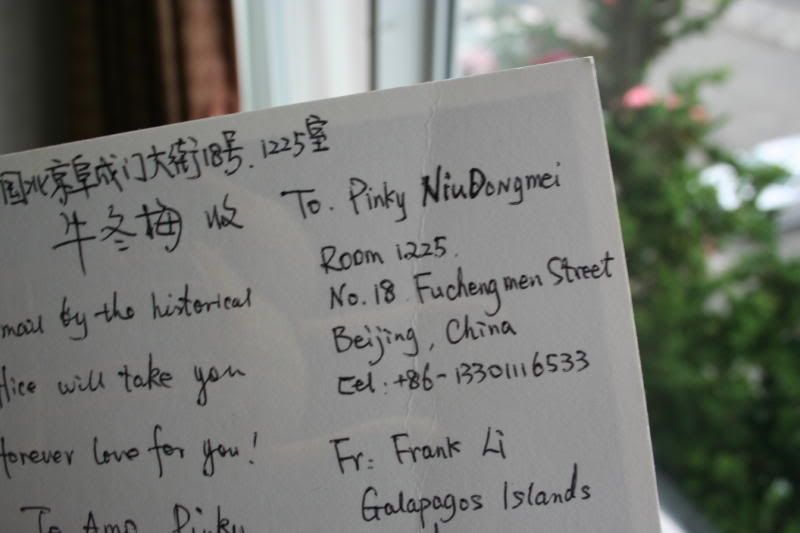 国北京阜成门大街18号.1225室
牛冬梅 收
mail by the historical
will take you
forever love for you!
To Amo Pinky
To. Pinky NiuDongmei
Room 1225.
No.18 Fuchengmen Street
Beijing, China
Cel: +86-13301116533
Fr: Frank Li
Galapagos Islands